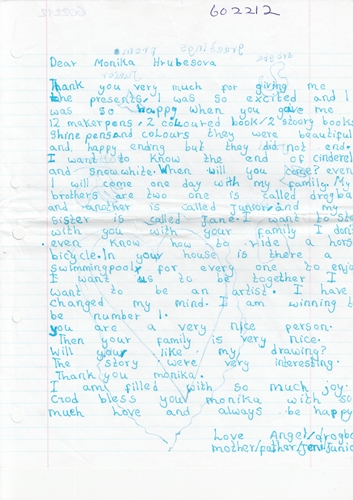 602212
Dear Monika Hrubesova
Thank you very much for giving me
the presents, I was so excited and I
was so happy when you gave me
12 maker pens, 2 coloured book, 2 stoory books
shine pens and colours they were beautiful
and happy ending but they did not end.
I want to know the end of cinderel
and snow white. When will you come? even
I will come one day with my family. My
brothers are two one is called drogba
and another is called Junior and my
sister is called Jane. I want to sta
with you with your family I don
even know how to ride a hors
bicycle. In your house is there a
swimmingpool for every one to enjo
I want us to be together I
want to be an artist. I have
changed my mind. I am winning to
be number 1.
you are a very nice person.
Then your family is very nice.
Will you like my drawing?
The story were very interesting.
Thank you monika.
I am filled with so much joy.
God bless you monika with so
much love and always be happy
Love Angel/drogba
mother/father/Jen/Junio